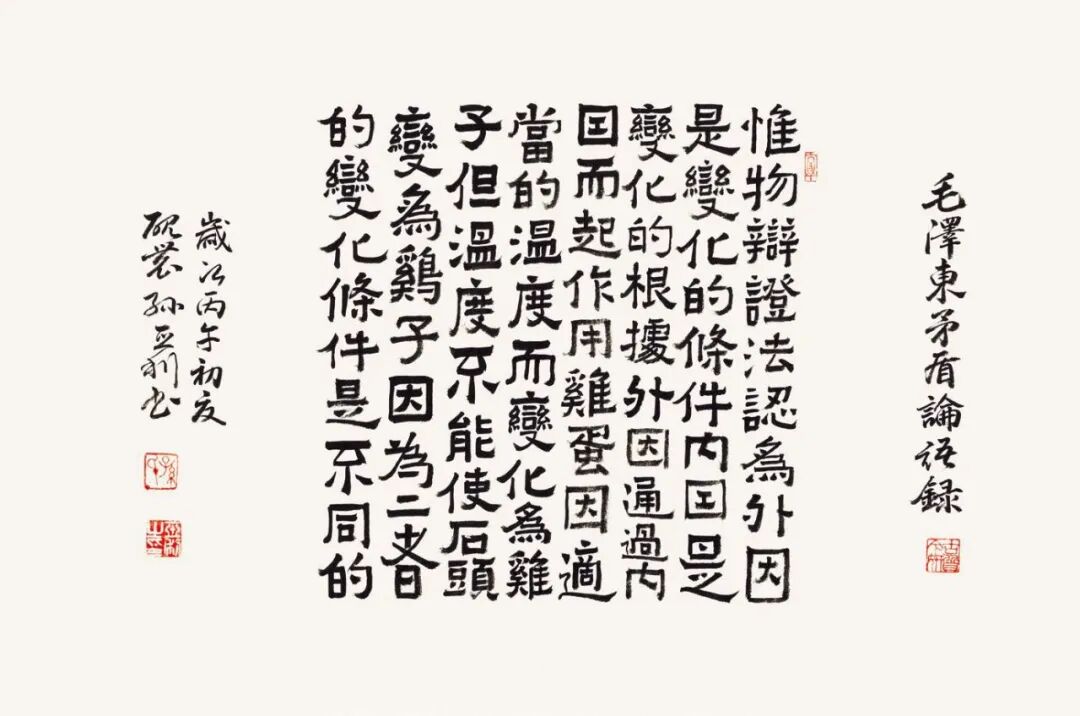 毛澤東矛盾論語録
惟物辯證法認爲外因
是變化的條件内因是
變化的根據外因通過内
因而起作用雞蛋因適
當的温度而變化爲雞
子但温度不能使石頭
變爲鷄子因為二者
的變化條件是不同的
歲次丙午初夏
孫亞利書